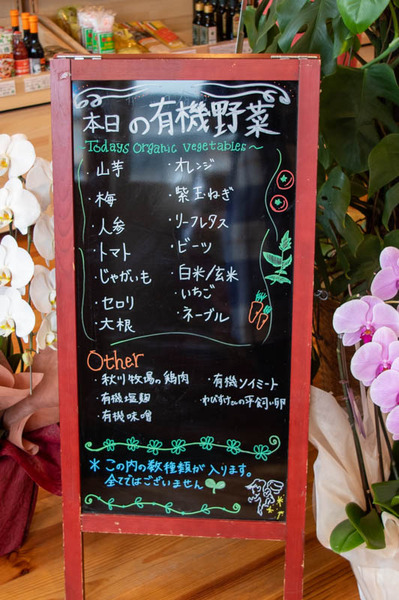 本日の有機野菜
Todays organic vegetables～
・山芋
・梅
・人参
・トマト
・じゃがいも
・セロリ
・大根
・オレンジ
・紫玉ねぎ
・リーフレタス
・ビーツ
・白米/玄米
・いちご
・ネーブル
Other
・秋川牧場の鶏肉
・有機塩麹
・有機味噌
・有機ソイミート
の平飼い卵
＊この内の数種類が入ります。
全てではございません